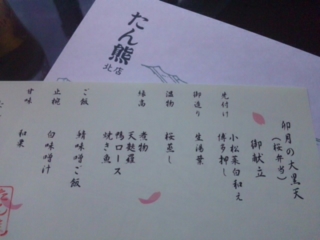 たん熊
北店
卯月の大黒天
(桜弁当)
御献立
先付け 小松菜白和え
博多押し
御造り 生湯葉
温物 桜蒸し
縁高 煮物
天麩羅
鴨ロース
焼き魚
ご飯 味噌ご飯
止椀 白味噌汁
甘味 和菓